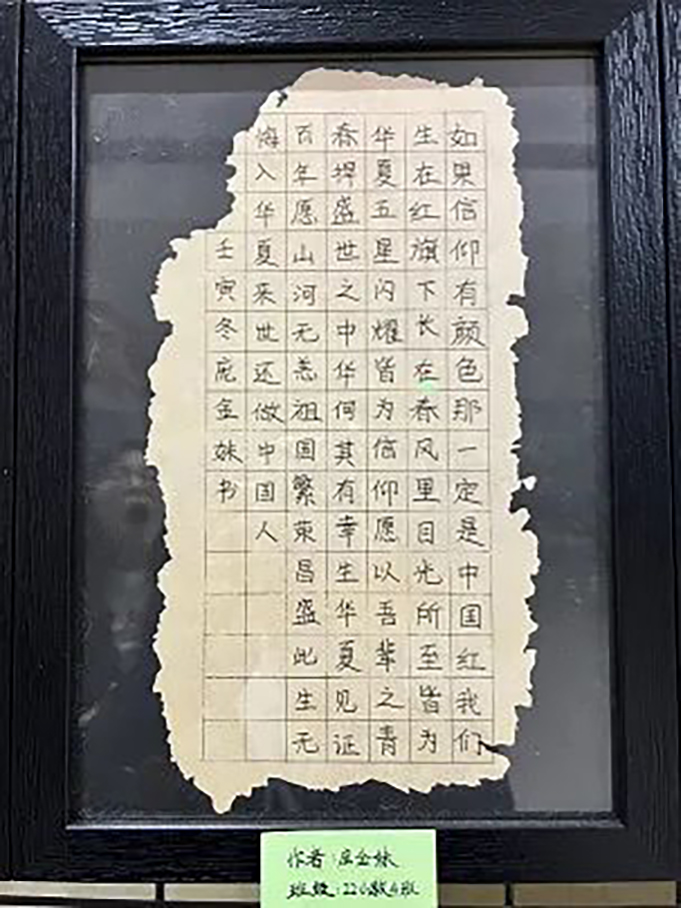 如果信仰有颜色那一定是中国红我们
生在红旗下长在春风里目光所至皆为
华夏五星闪耀皆为信仰愿以吾辈之青
春捍盛世之中华何其有幸生华夏见证
百年愿山河无恙祖国繁荣昌盛此生无
悔入华夏来世还做中国人
壬寅冬庞金妹书
作者:庄金妹
班级:22小教4班